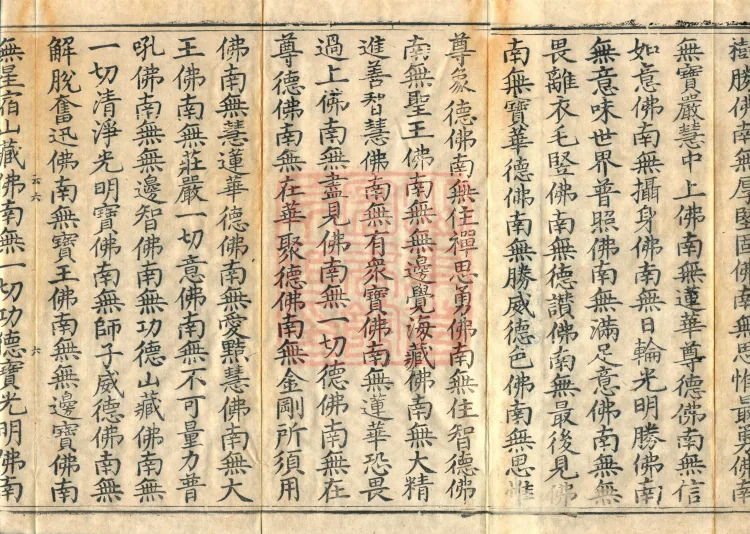 樹勝佛南無厚堅固佛南無思惟最勇佛南
無寶嚴慧中上佛南無蓮華尊德佛南無信
如意佛南無攝身佛南無日輪光明勝佛南
無意味世界普照佛南無滿足意佛南無無
畏離衣毛竪佛南無德讃佛南無最後見佛
南無寶華德佛南無勝威德色佛南無思惟
尊象德佛南無住禪思勇佛南無住智德佛
南無聖王佛南無無邊覺海藏佛南無大精
進善智慧佛南無有衆寶佛南無蓮華恐畏
過上佛南無盡見佛南無一切德佛南無在
尊德佛南無在華聚德佛南無金剛所須用
佛南無慧蓮華德佛南無愛黠慧佛南無大
王佛南無莊嚴一切意佛南無不可量力普
吼佛南無無邊智佛南無功德山藏佛南無
一切清淨光明寶佛南無師子威德佛南無
解脫奮迅佛南無寶王佛南無無邊寶佛南
云六 六
無星宿山藏佛南無一切功德寶光明佛南